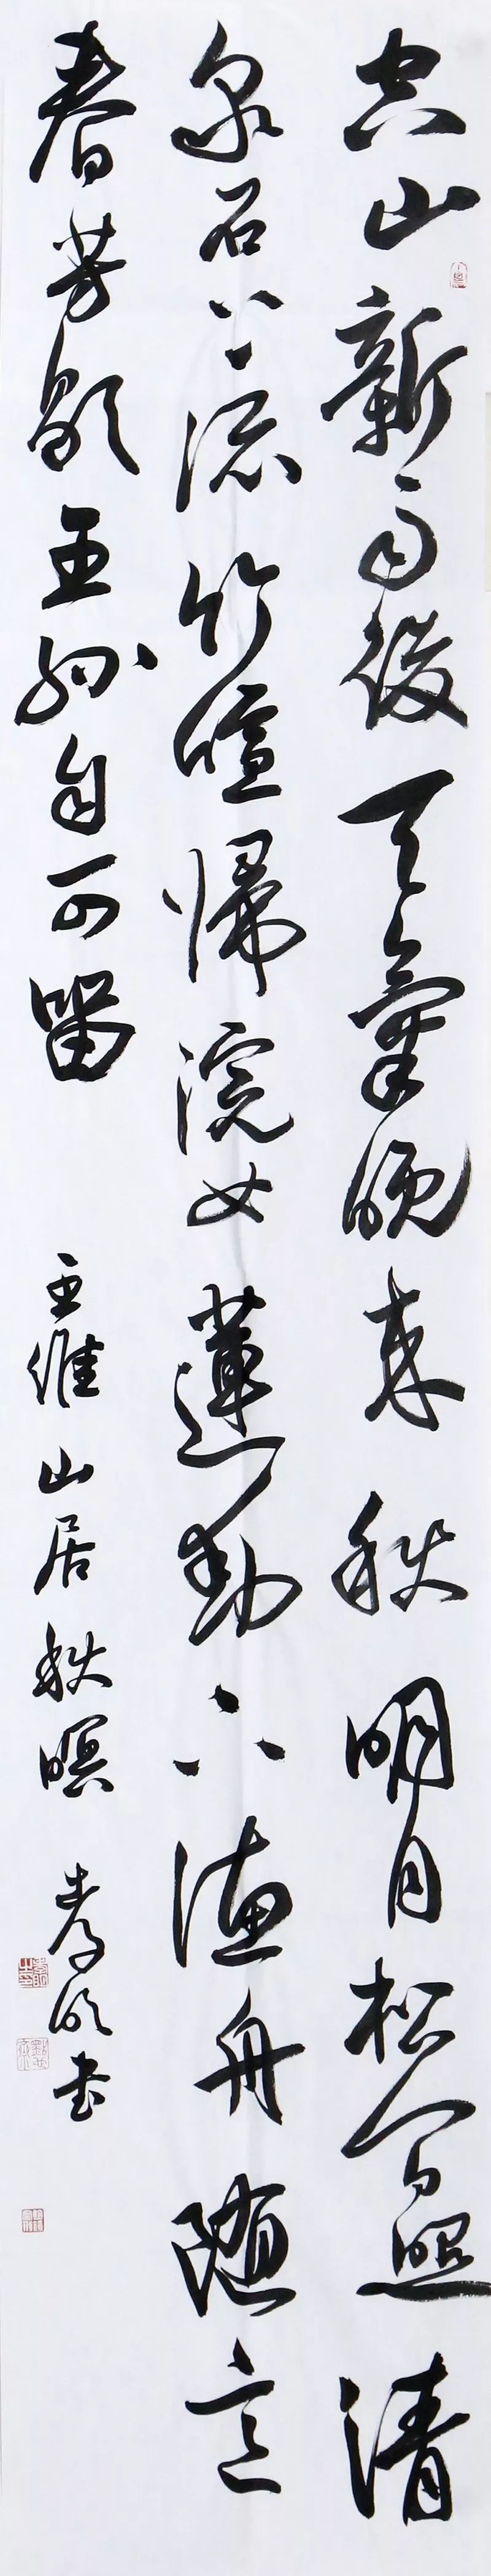 空山新雨後天氣晚來秋明月松間照清
泉石上流竹喧歸浣女蓮動下漁舟隨意
春芳歇王孫自可留
王維山居秋暝 孝明書